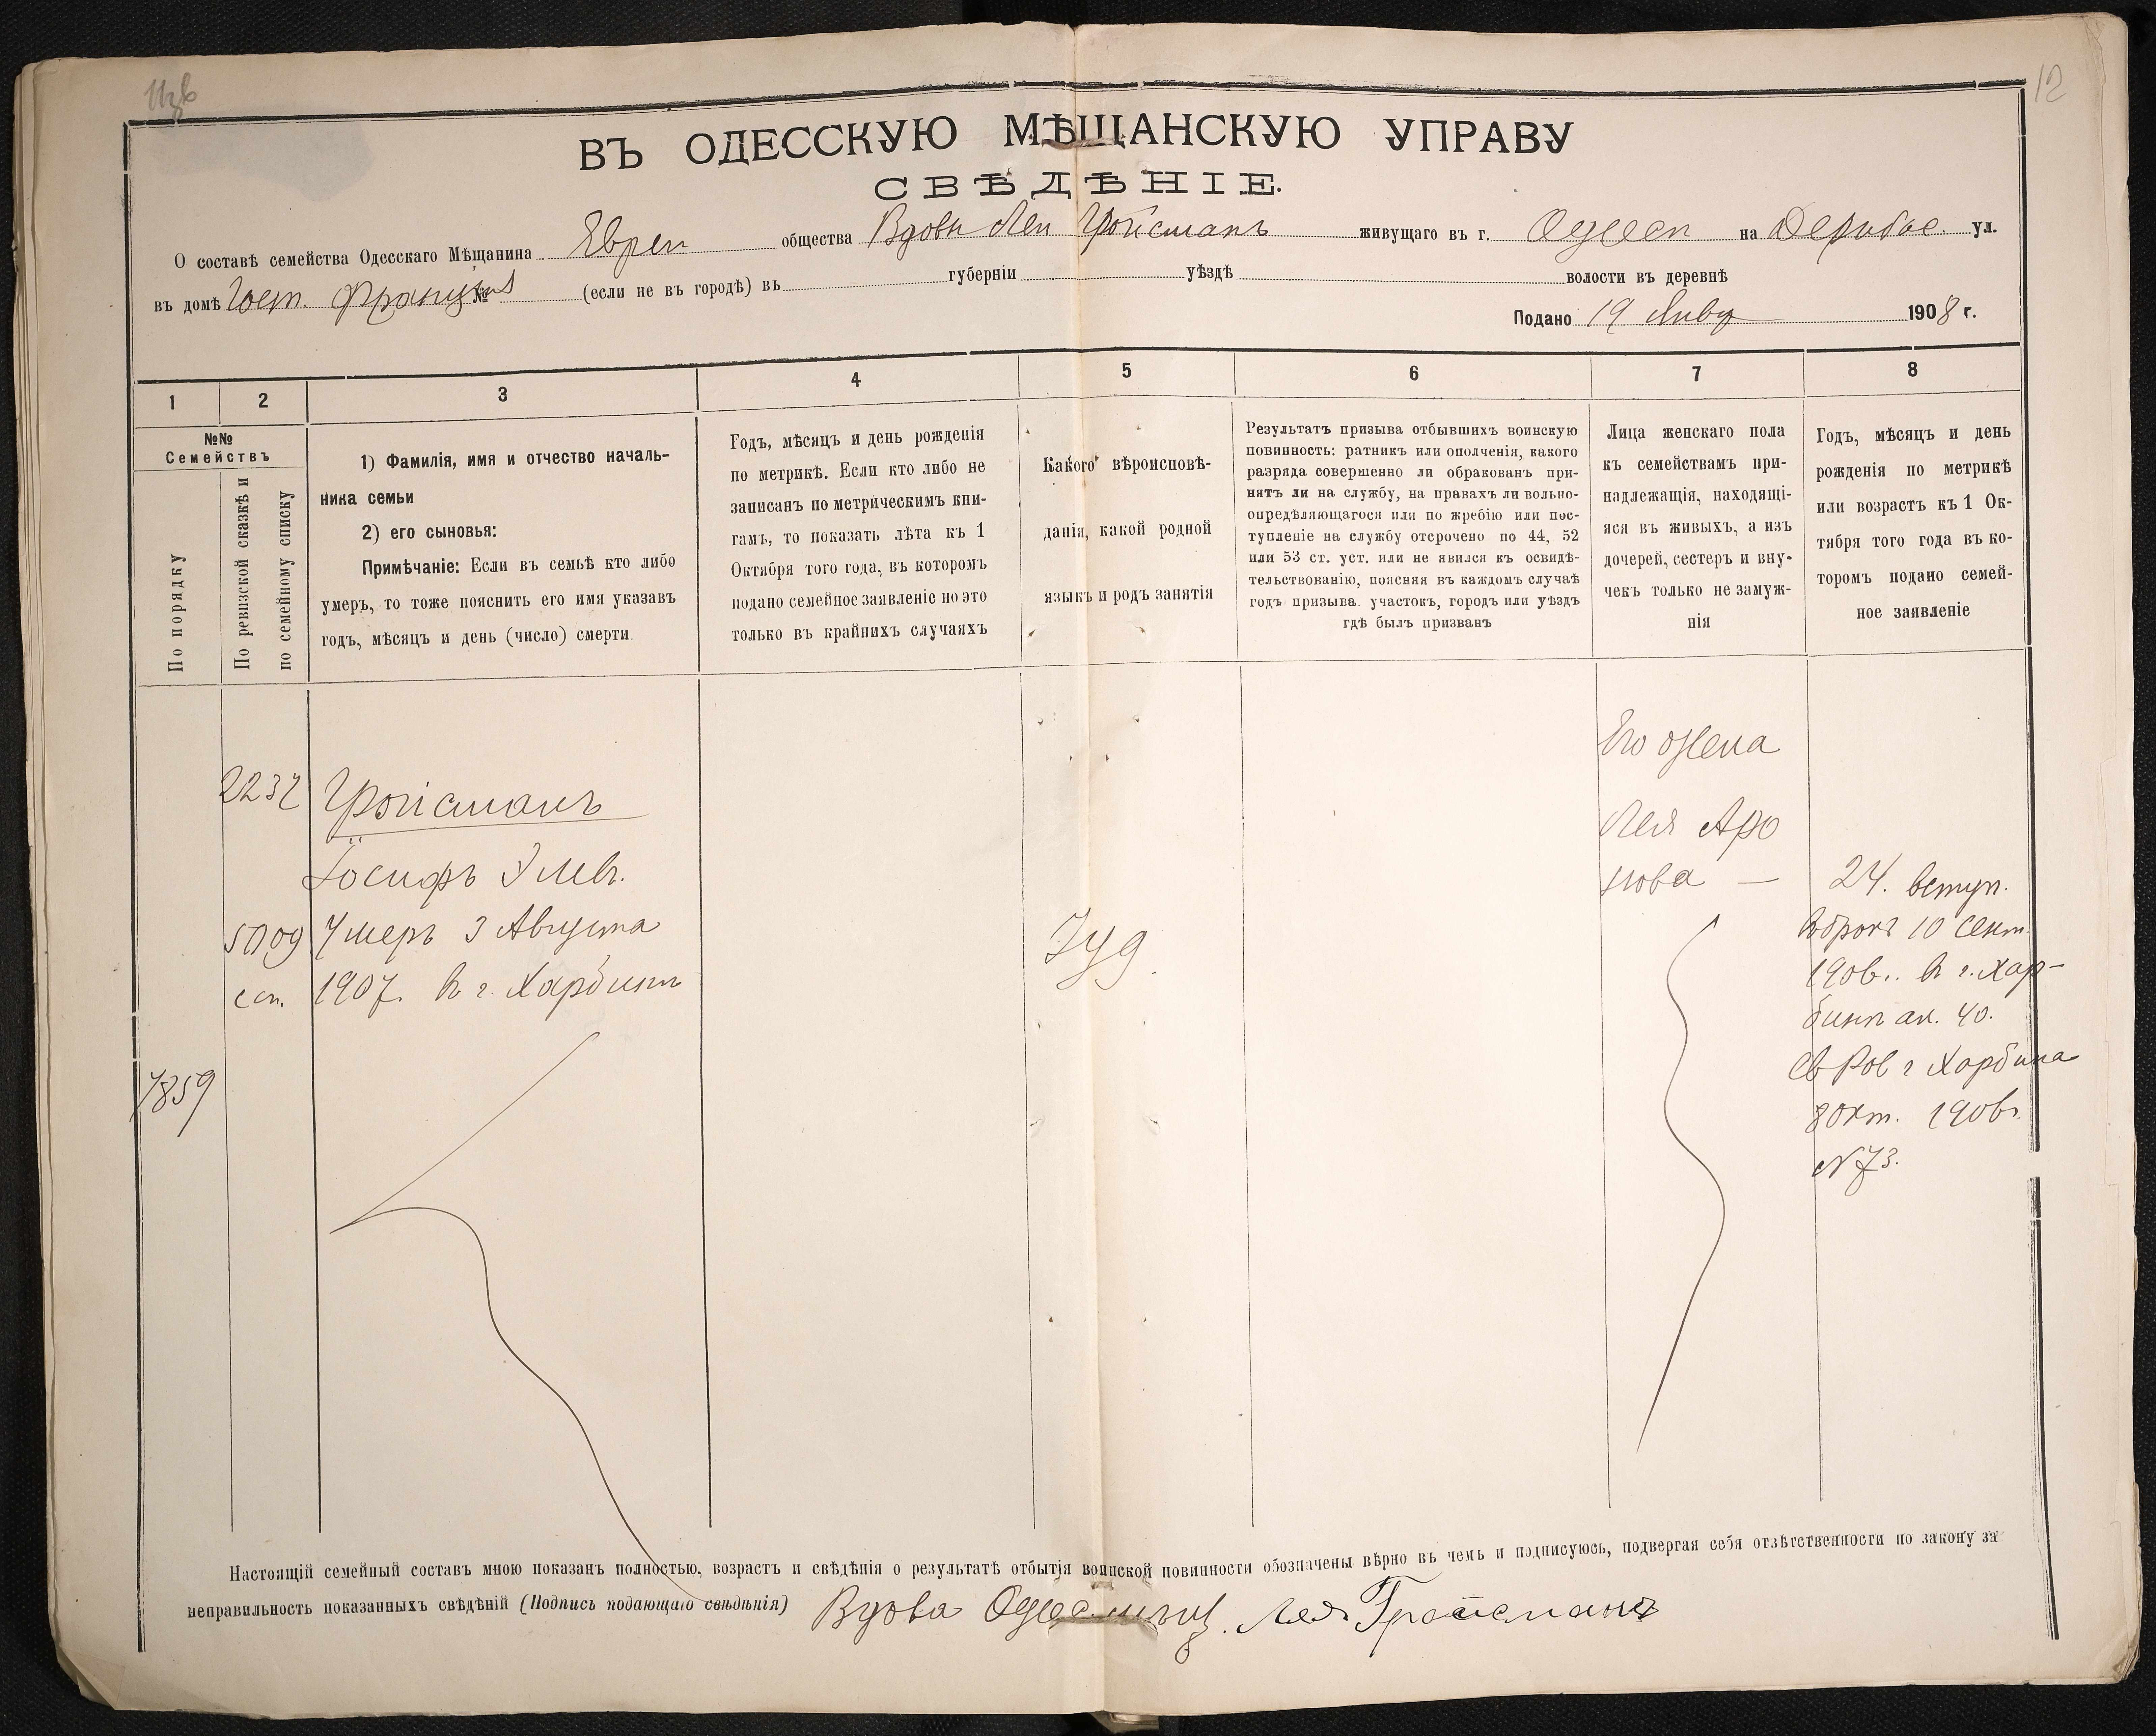 12
ВЪ ОДЕССКУЮ МѢЩАНСКУЮ УПРАВУ
СВѢДѢНІЕ.
О составѣ семейства Одесскаго Мѣщанина Евреи общества Вдовы Леи Гройсманъ живущаго въ г. Одессѣ на Дерибас. ул.
въ домѣ Гост. Франція № (если не въ городѣ) въ губерніи уѣздѣ волости въ деревнѣ
Подано 19 Янв 1908 г.
1 2 3 4 5 6 7 8
№№
Семействъ
По порядку
По ревизской сказкѣ и
по семейному списку
1) Фамилія, имя и отчество началь-
ника семьи
2) его сыновья:
Примѣчаніе: Если въ семьѣ кто либо
умеръ, то тоже пояснить его имя указавъ
годъ, мѣсяцъ и день (число) смерти.
Годъ, мѣсяцъ и день рожденія
по метрикѣ. Если кто либо не
записанъ по метрическимъ кни-
гамъ, то показать лѣта къ 1
Октября того года, въ которомъ
подано семейное заявленіе но это
только въ крайнихъ случаяхъ
Какого вѣроисповѣ-
данія, какой родной
языкъ и родъ занятія
Результатъ призыва отбывшихъ воинскую
повинность: ратникъ или ополченія, какого
разряда совершенно ли обракованъ при-
нятъ ли на службу, на правахъ ли вольно-
опредѣляющагося или по жребію или пос-
тупленіе на службу отсрочено по 44, 52
или 53 ст. уст. или не явился къ освидѣ-
тельствованію, поясняя въ каждомъ случаѣ
годъ призыва. участокъ, городъ или уѣздъ
гдѣ былъ призванъ
Лица женскаго пола
къ семействамъ при-
надлежащія, находящі-
яся въ живыхъ, а изъ
дочерей, сестеръ и вну-
чекъ только не замуж-
нія
Годъ, мѣсяцъ и день
рожденія по метрикѣ
или возрастъ къ 1 Ок-
тября того года въ ко-
торомъ подано семей-
ное заявленіе
2237
5009
сп.
7859
Гройсманъ
Іосифъ
Умеръ 3 Августа
1907. в г. Харбинѣ
Іуд.
Его жена
Лея Аро
нова —
24. вступ.
в бракъ 10 Сент.
1906. в г. Хар-
бинѣ ак. 40.
Св Рав г Харбина
8 Окт. 1906.
№ 73.
Настоящій семейный составъ мною показанъ полностью, возрастъ и свѣдѣнія о результатѣ отбытія воинской повинности обозначены вѣрно въ чемъ и подписуюсь, подвергая себя отвѣтственности по закону за
неправильность показанныхъ свѣдѣній (Подпись подающаго свѣдѣнія) Вдова Лея Гройсманъ